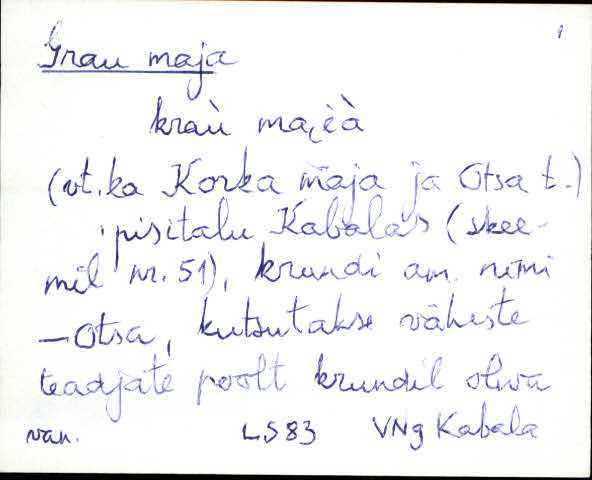 1
Grau maja
kraù
(vt. ka Korka maja ja Otsa t.)
pisitalu Kabalas (skee-
mil nr. 51), krundi am. nimi
– Otsa, kutsutakse väheste
teadjate poolt krundil oleva
van. LS83 VNg Kabala